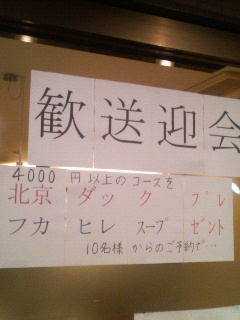 歓送迎会
4000円以上のコースを
北京ダック プレ
フカヒレスープ ゼント
10名様からのご予約で…